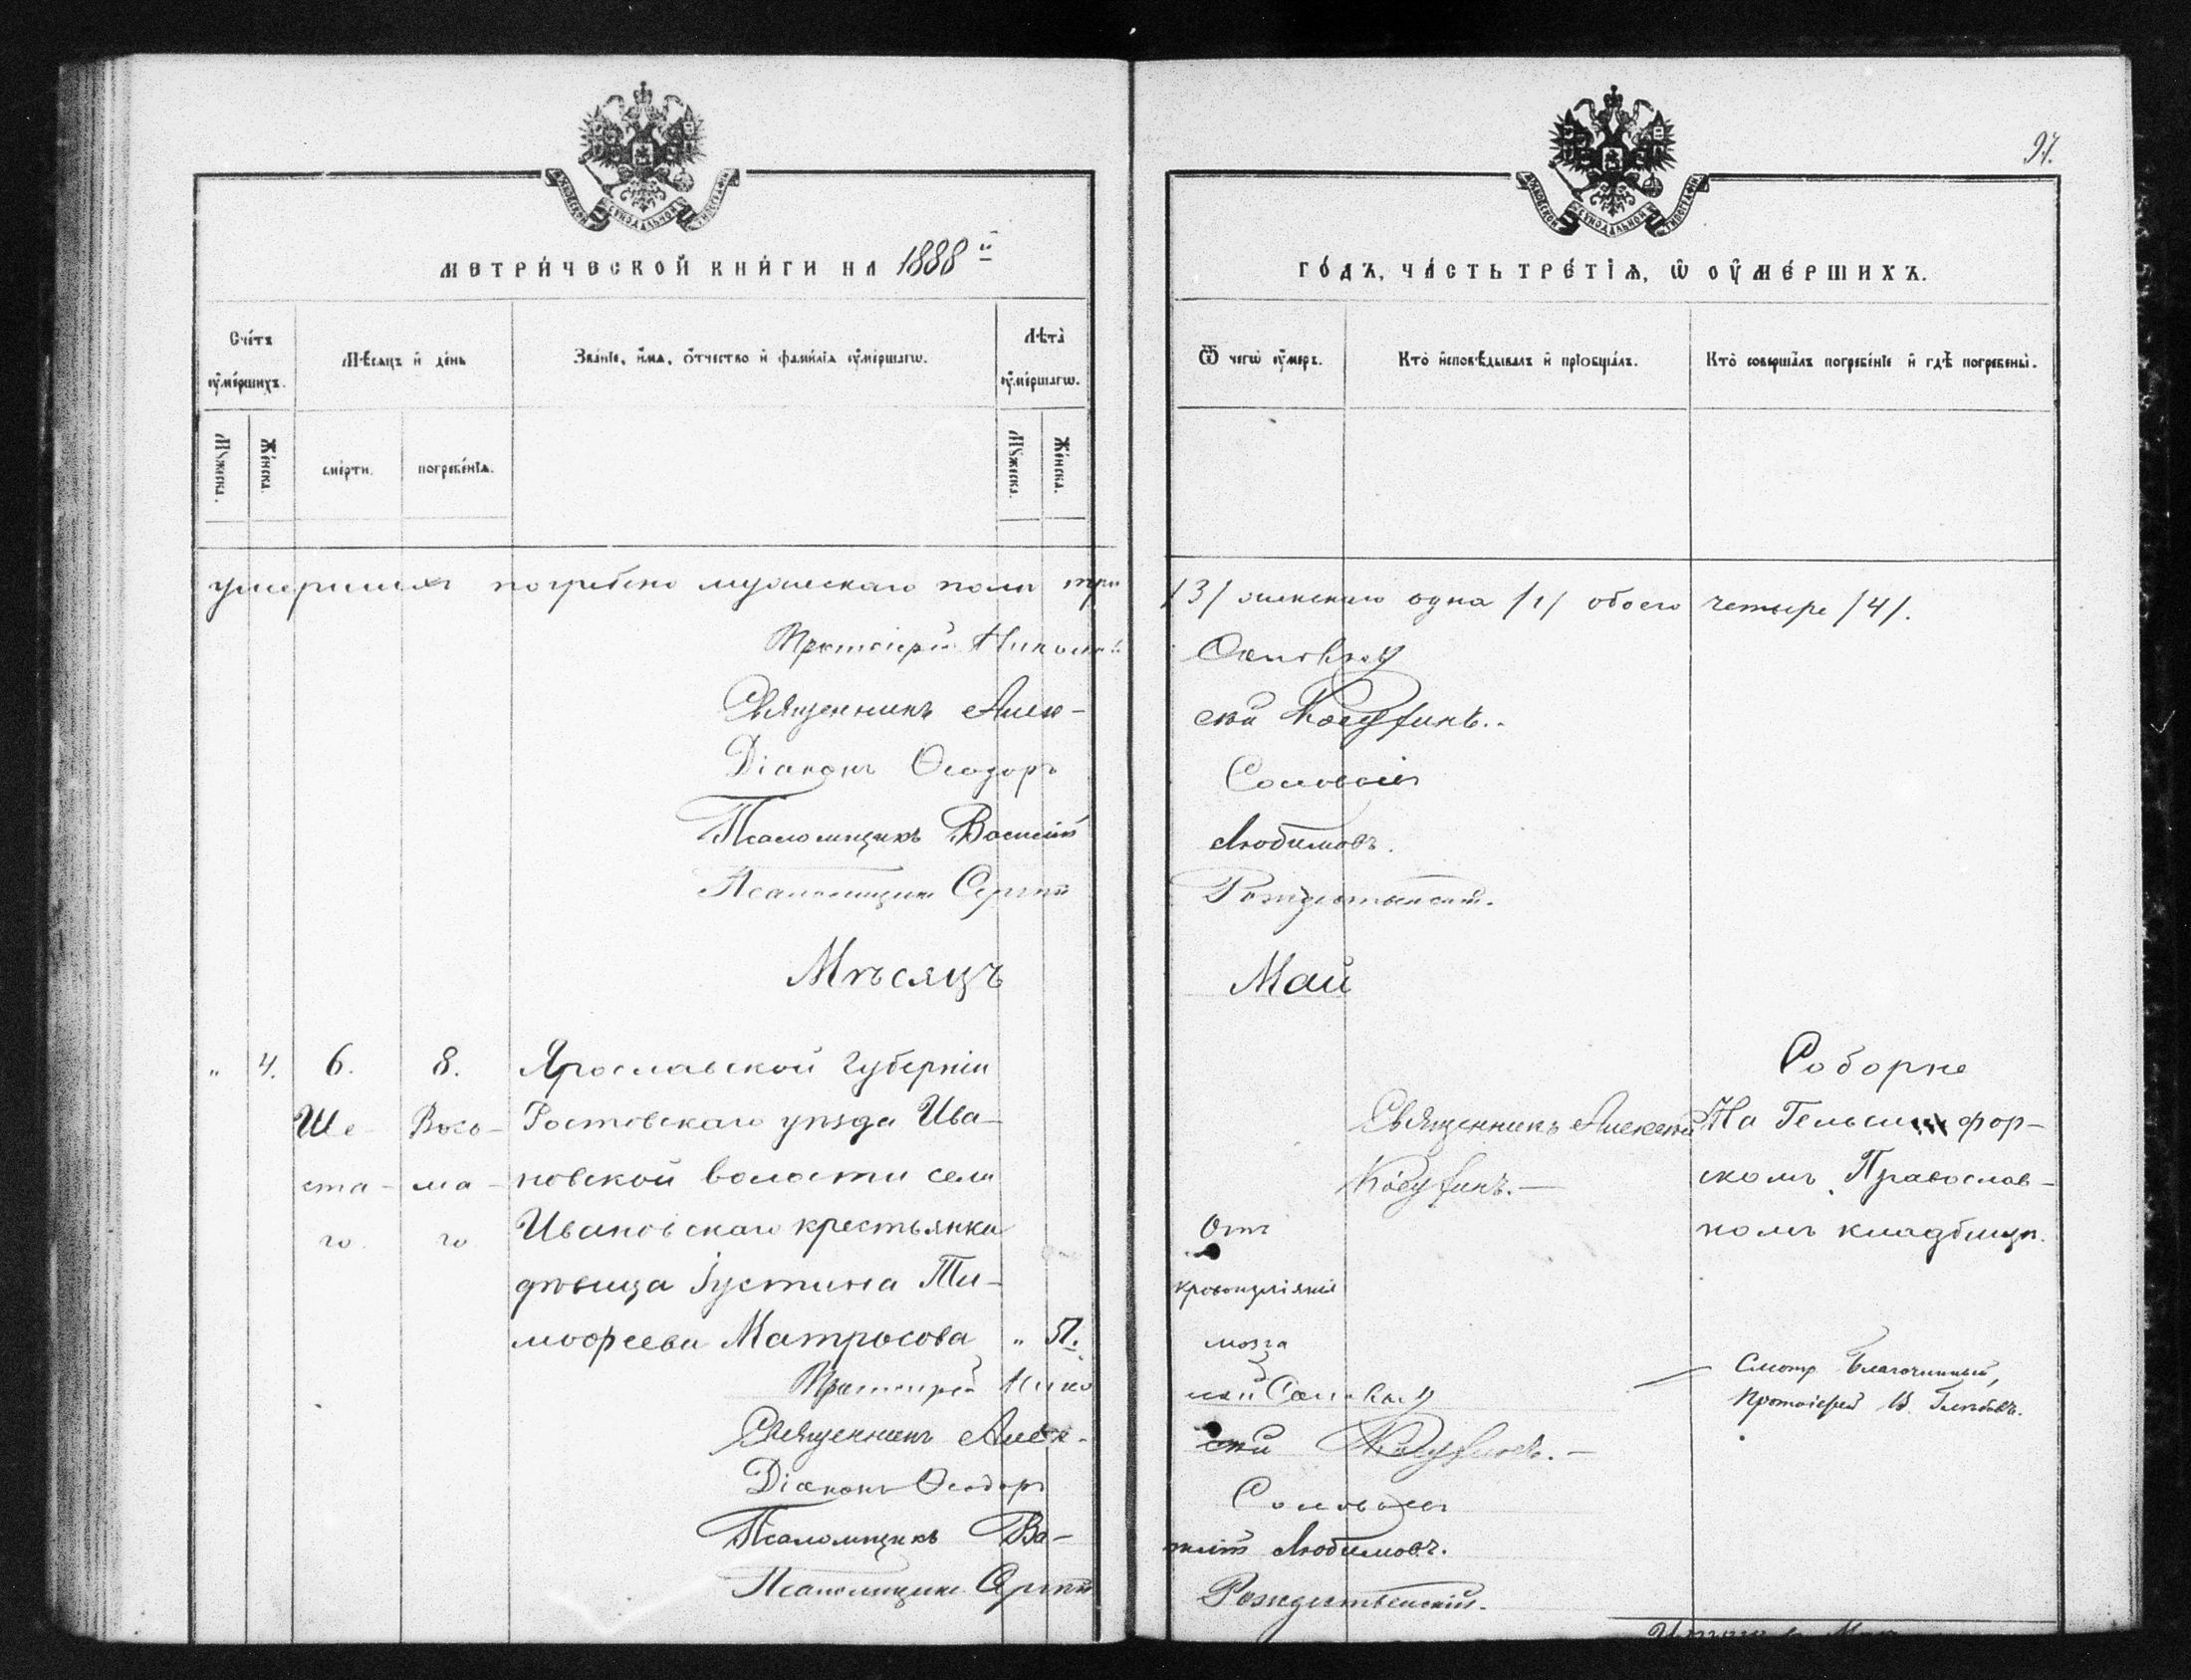 97.
МЕТРИ́ЧЕСКОЙ КНИ́ГИ НА 1888й
ГО́ДЪ, ЧА́СТЬ ТРЕ́ТІѦ, Ѡ ОУ҆МЕ́РШИХЪ.
Сче́тъ оу҆ме́ршихъ.
Мѣ́сяцъ и҆ де́нь
Зва́нїе, и҆́мѧ, ѻ҆́тчество и҆ фами́лїѧ оу҆ме́ршагѡ.
Лѣ́та оу҆ме́ршагѡ.
Ѿ чегѡ̀ оу҆́меръ.
Кто̀ и҆сповѣ́дывалъ и҆ прїобща́лъ.
Кто̀ соверша́лъ погребе́нїе и҆ гдѣ̀ погребены̀.
Мꙋ́жеска.
Же́нска.
сме́рти.
погребе́нїѧ.
Мꙋ́жеска.
Же́нска.
умершихъ погребено мужескаго пола три /3/ женскаго одна /1/ обоего четыре /4/.
Протоіерей Николай
Священникъ Алек-сѣй
Діаконъ Ѳеодоръ Соловьевъ
Псаломщикъ Василій Любимовъ.
Псаломщикъ Сергій Рождественскій.
Мѣсяцъ Май
" 4. 6. 8. Ярославской Губерніи
Ше- Вось- Ростовскаго уѣзда Ива-
ста- ма- новской волости села
го го Ивановскаго крестьянка
дѣвица Іустина Ти-
моѳеева Матросова " 51.
Отъ
кровоизліянія
мозга
Священникъ Алексѣй
Соборне
На Гельсингфор-
скомъ Православ-
номъ кладбищѣ.
Смотр. Благочинный,
Протоіерей
Протоіерей Нико-лай
Священникъ Алек-сѣй
Діаконъ Ѳеодоръ Соловьевъ
Псаломщикъ Ва-силій Любимовъ.
Псаломщикъ Сергій Рождественскій.